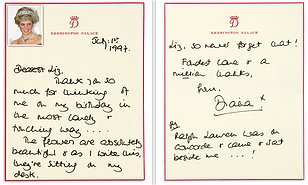 KENSINGTON PALACE
July. 1st
1997.
Dearest Liz,
Thank you so
much for thinking of
me on my birthday in
the most lovely &
touching way....
The flowers are absolutely
beautiful & as I write this,
they're sitting on my
desk.
KENSINGTON PALACE
Liz, so never forget that!
Fondest love & a
million thanks,
from,
Diana x
PS
Ralph Lauren was on
concorde & came & sat
beside me...!